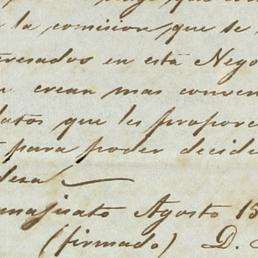 la comision que se
resados en está Nego
crean mas conven
datos que les propore
para poder decide
deza
najuato Agosto 15
(firmado) D.